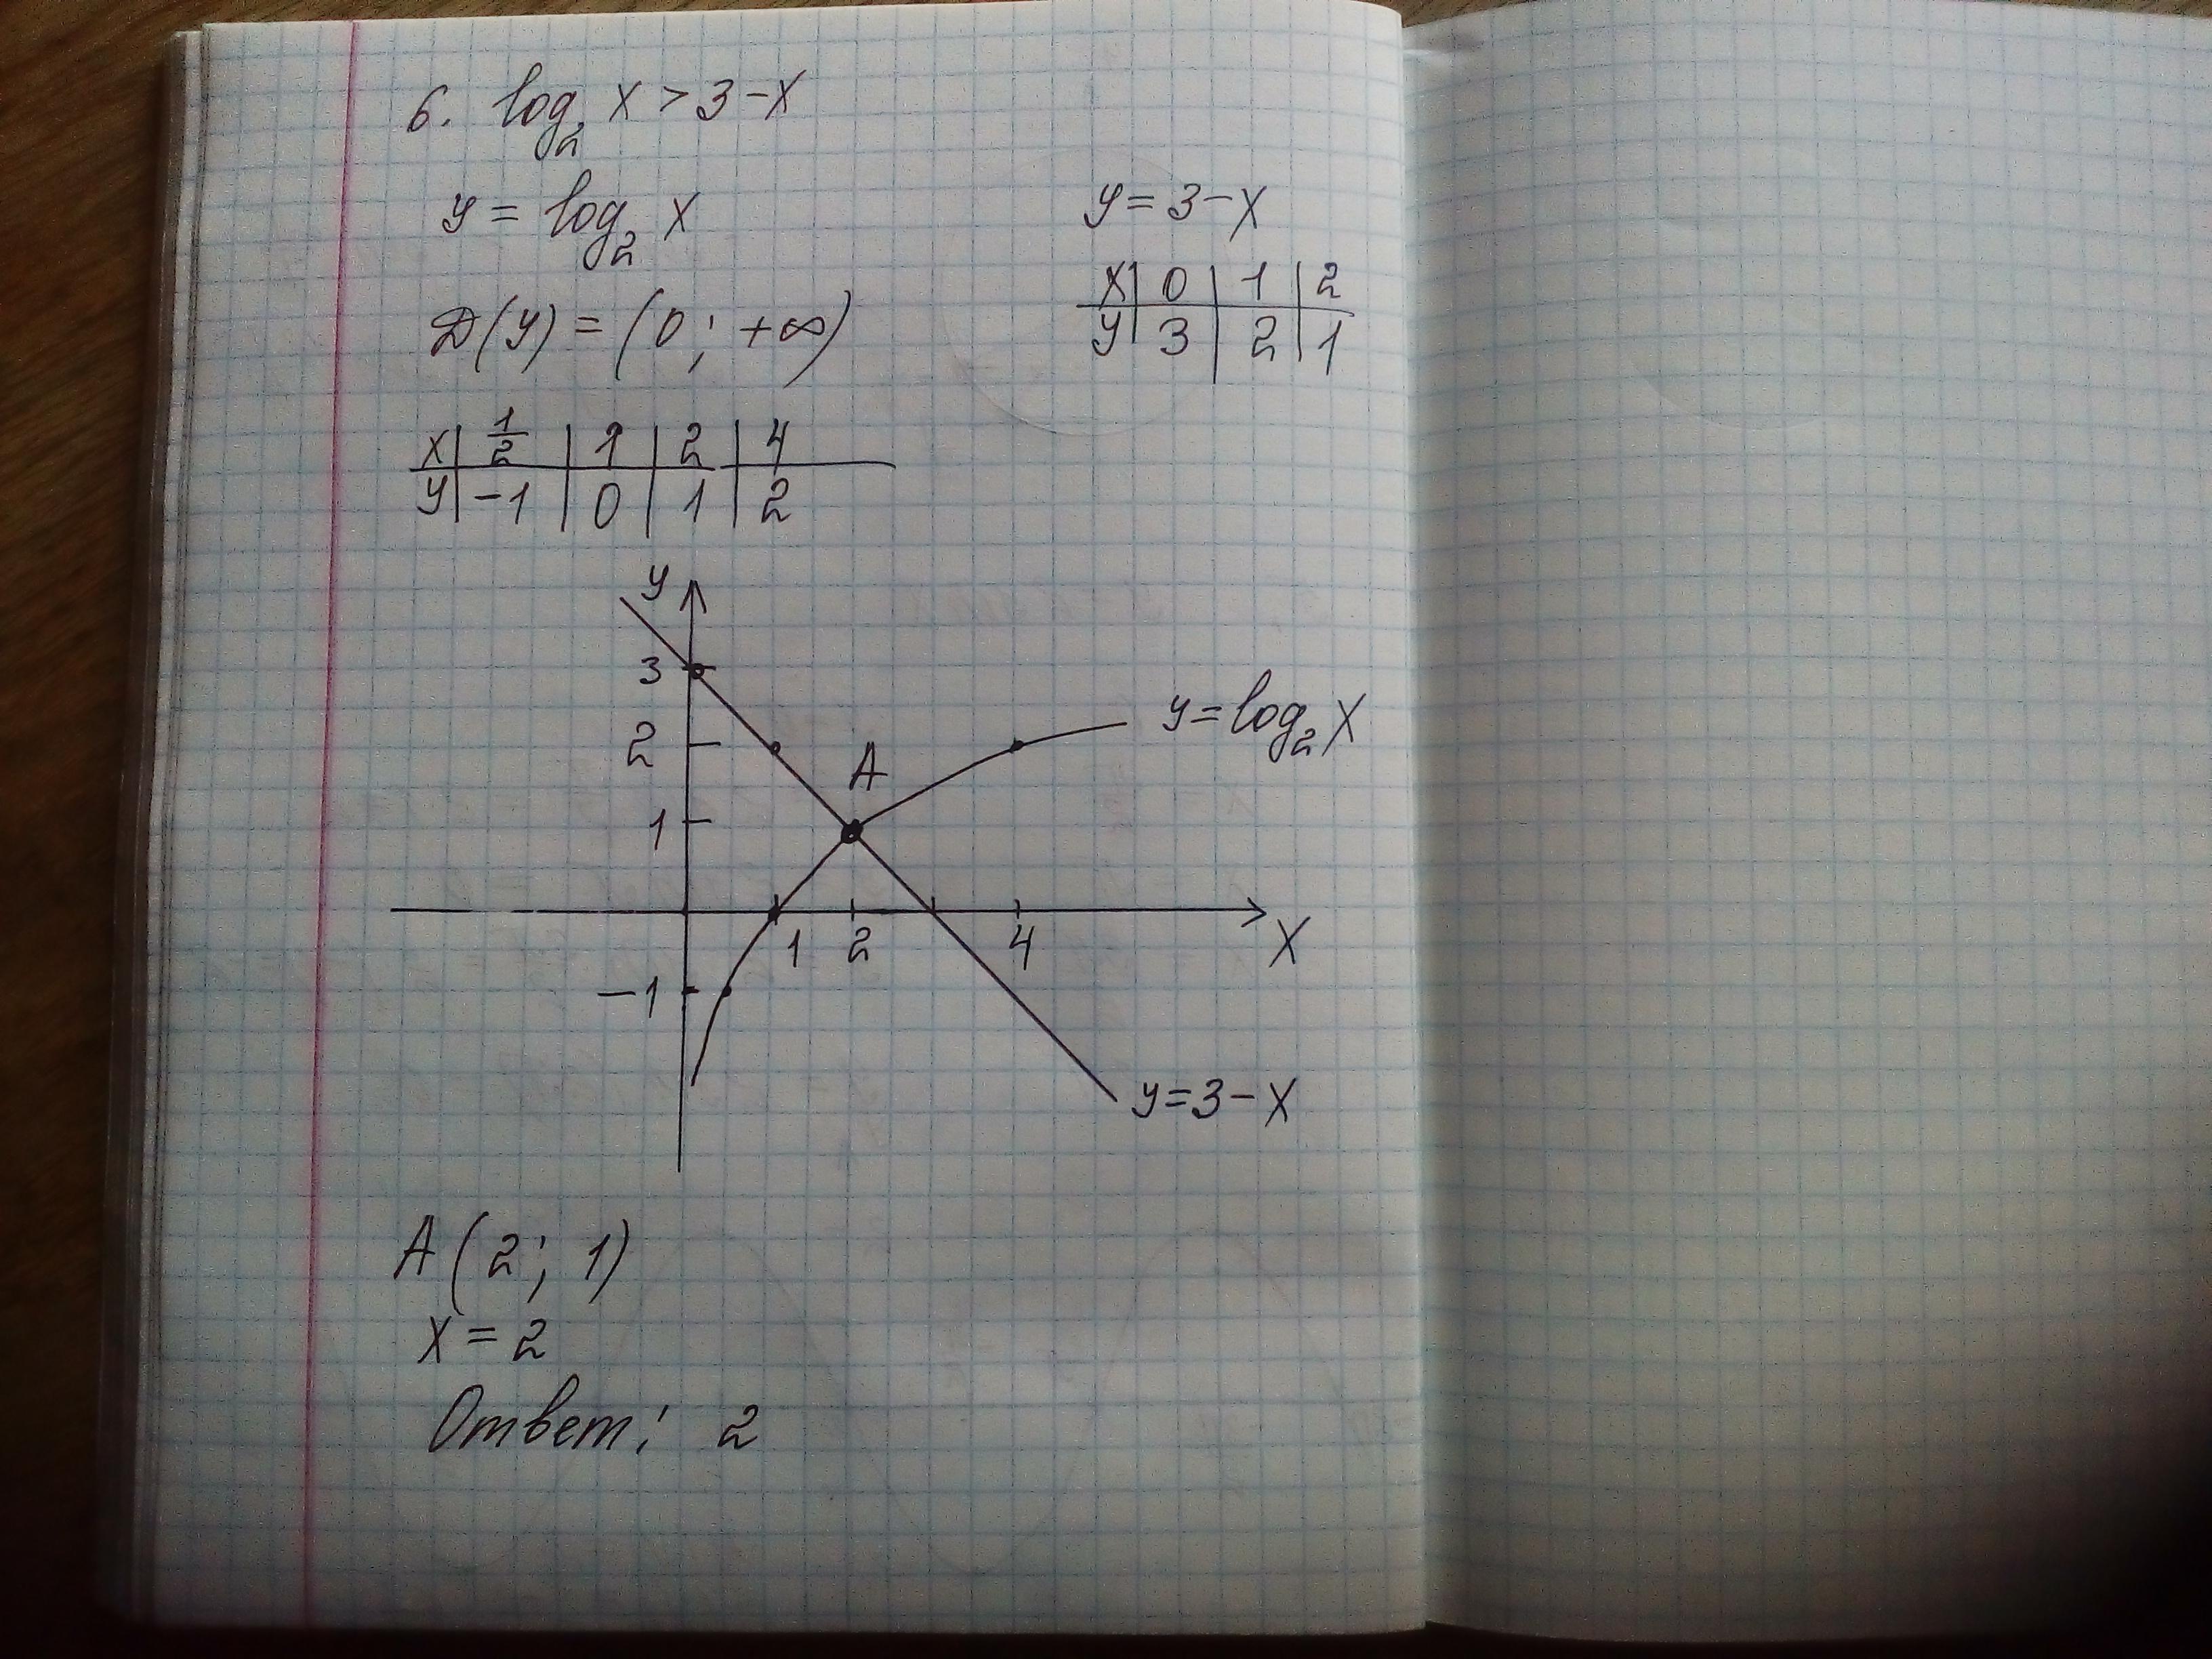 6. log₂ x > 3 - x
y = log₂ x
D(y) = (0; +∞)
x | 1/2 | 1 | 2 | 4
y | -1 | 0 | 1 | 2
y = 3 - x
x | 0 | 1 | 2
y | 3 | 2 | 1
y
3
2
1
-1
A
1 2 4
x
y = log₂ x
y = 3 - x
A (2; 1)
x = 2
Ответ: 2